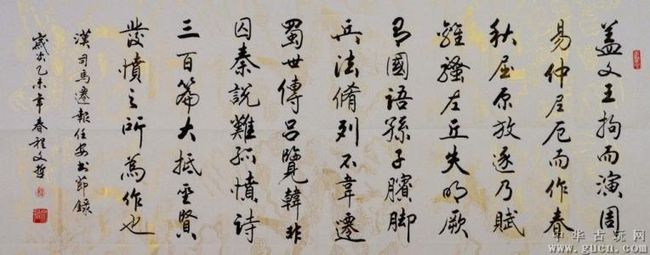 盖文王拘而演周
易仲尼厄而作春
秋屈原放逐乃賦
離騷左丘失明厥
有國語孫子臏脚
兵法脩列不韋遷
蜀世傳呂覽韓非
囚秦說難孤憤詩
三百篇大抵聖賢
發憤之所為作也
漢司馬遷報任安書節錄
歲次乙未年春程文哲
中华古玩网
www.gucn.com